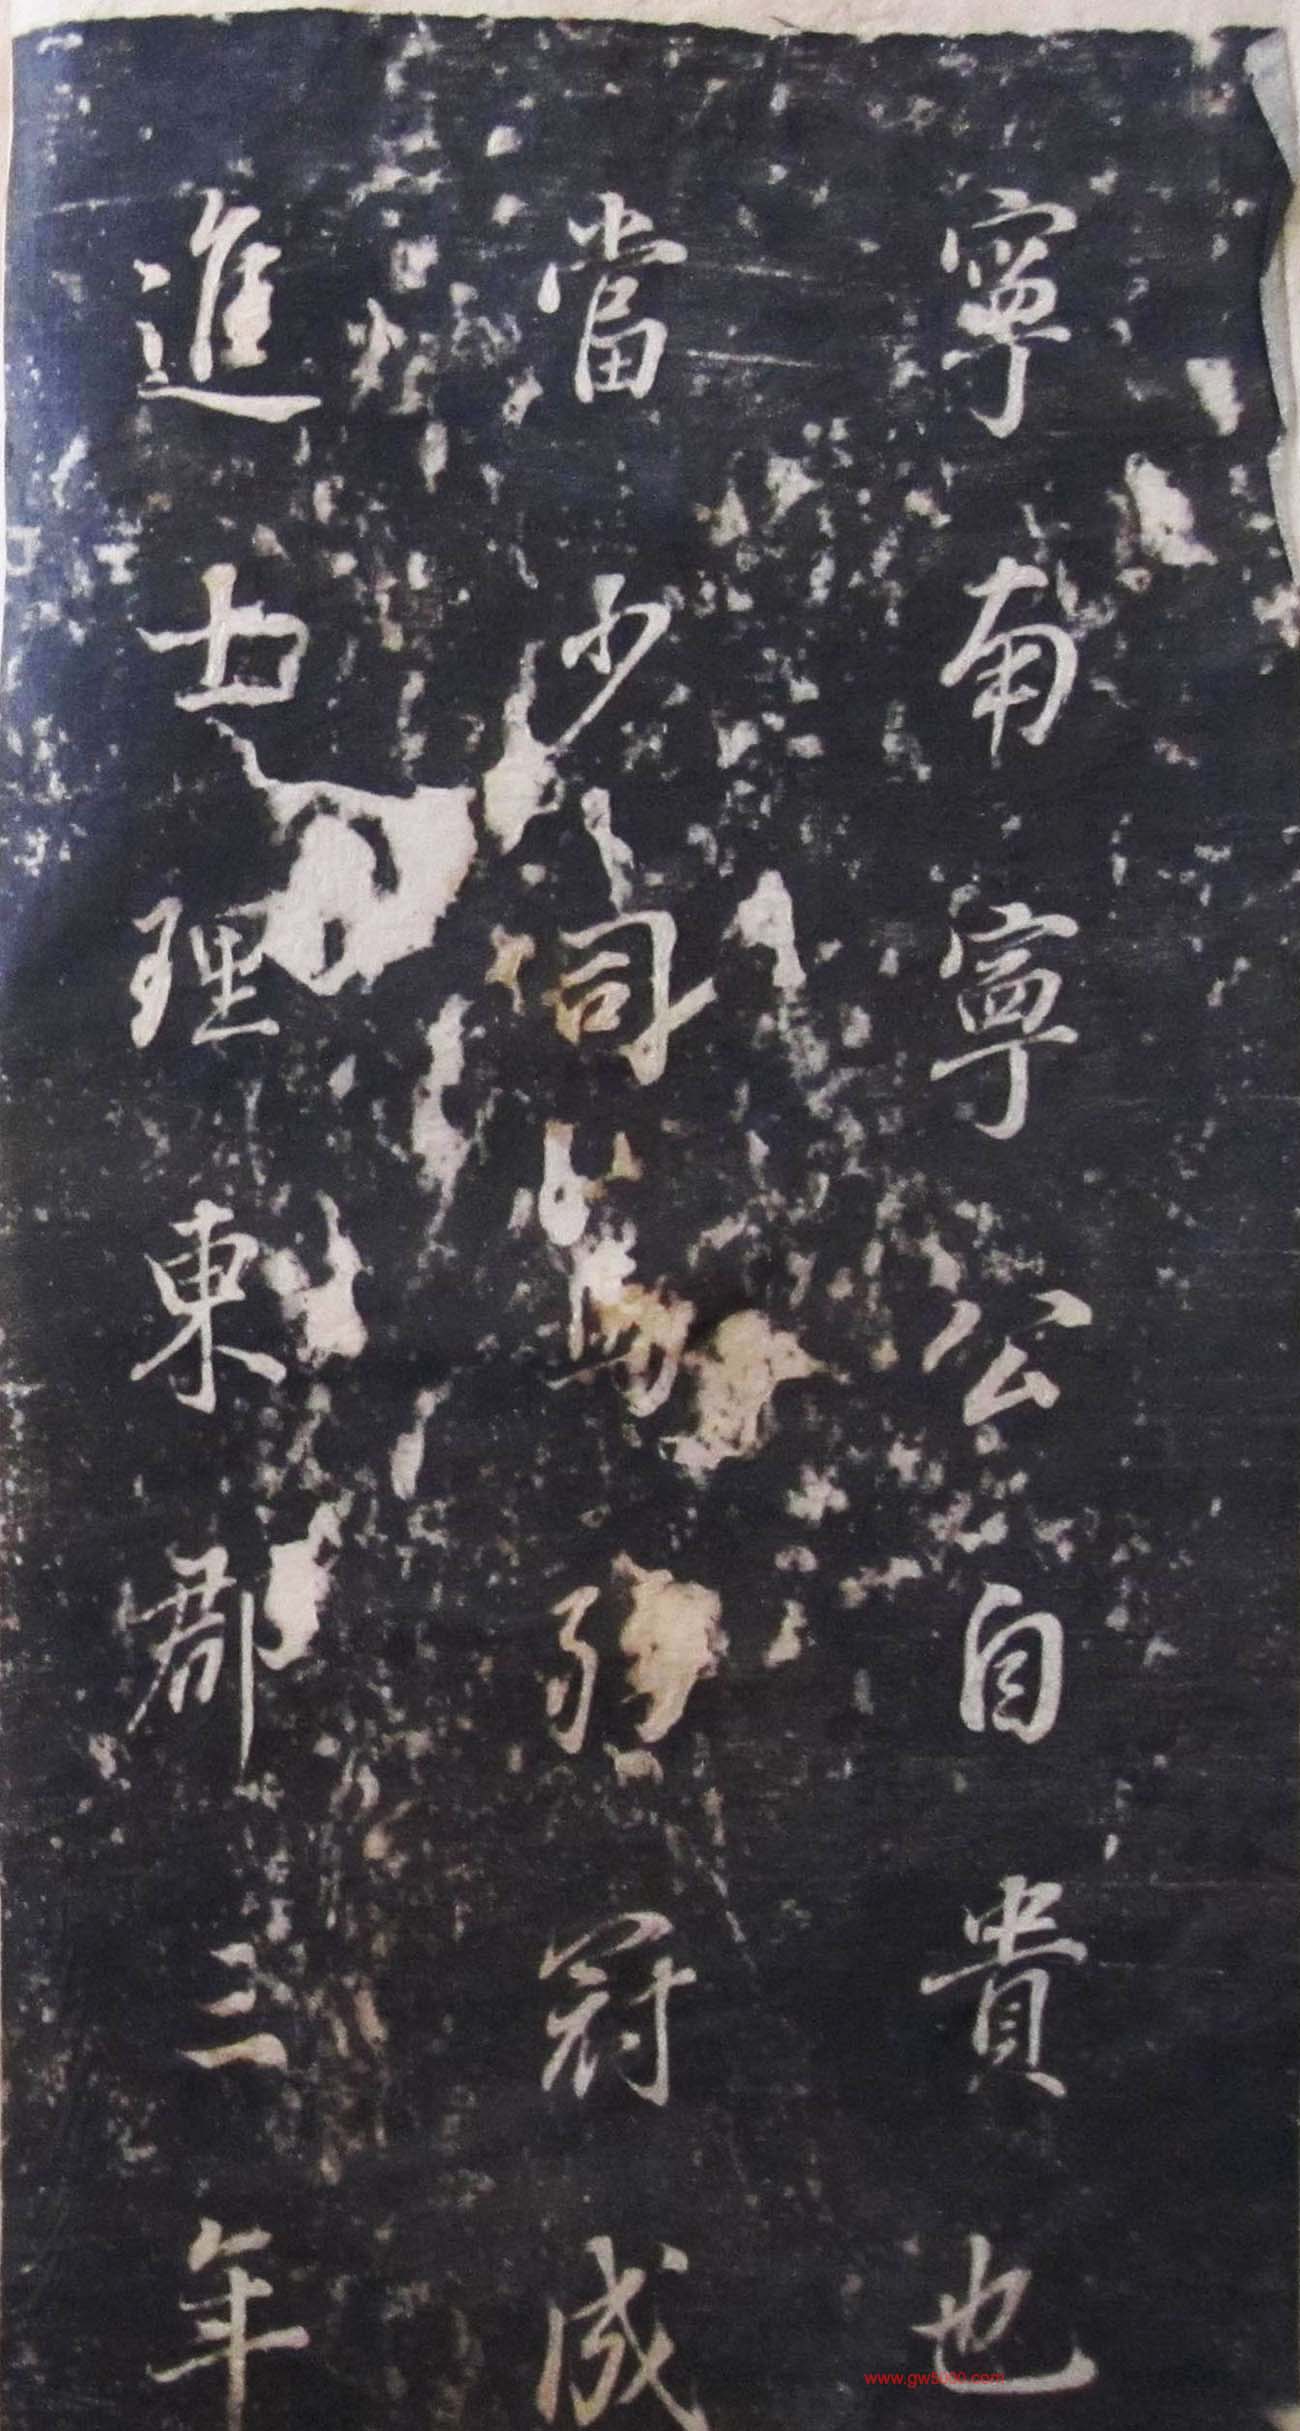 寧南寧公自貴也
當少司馬弱冠成
進士理東郡三年
www.gw5000.com